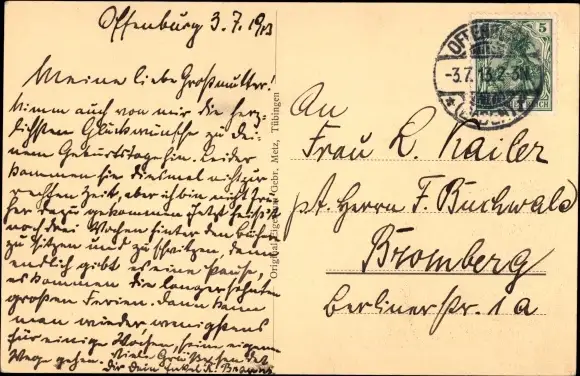 Offenburg 3.7.1913
Meine liebe Großmutter!
Nimm auch von mir die herz-
lichsten Glückwünsche zu Dei-
nem Geburtstage hin. Leider
kommen sie diesmal nicht zur
rechten Zeit, aber ich bin nicht frü-
her dazu gekommen. Jetzt heißt es
noch drei Wochen hinter den Büchern
zu sitzen und zu schwitzen, denn
endlich gibt es eine Pause,
es kommen die langersehnten
großen Ferien. Dann kann
man wieder wenigstens
für einige Wochen, seine eigenen
Wege gehen. Viele Grüße sendet
Dir Dein Enkel K. Brauns
Original Eigentum Gebr. Metz, Tübingen
5
OFFENBURG
-3.7.13.2-3N.
* (BADEN)
An
Frau L. Kailer
p.A. Herrn F. Buchwald
Bromberg
Berlinerstr. 1a